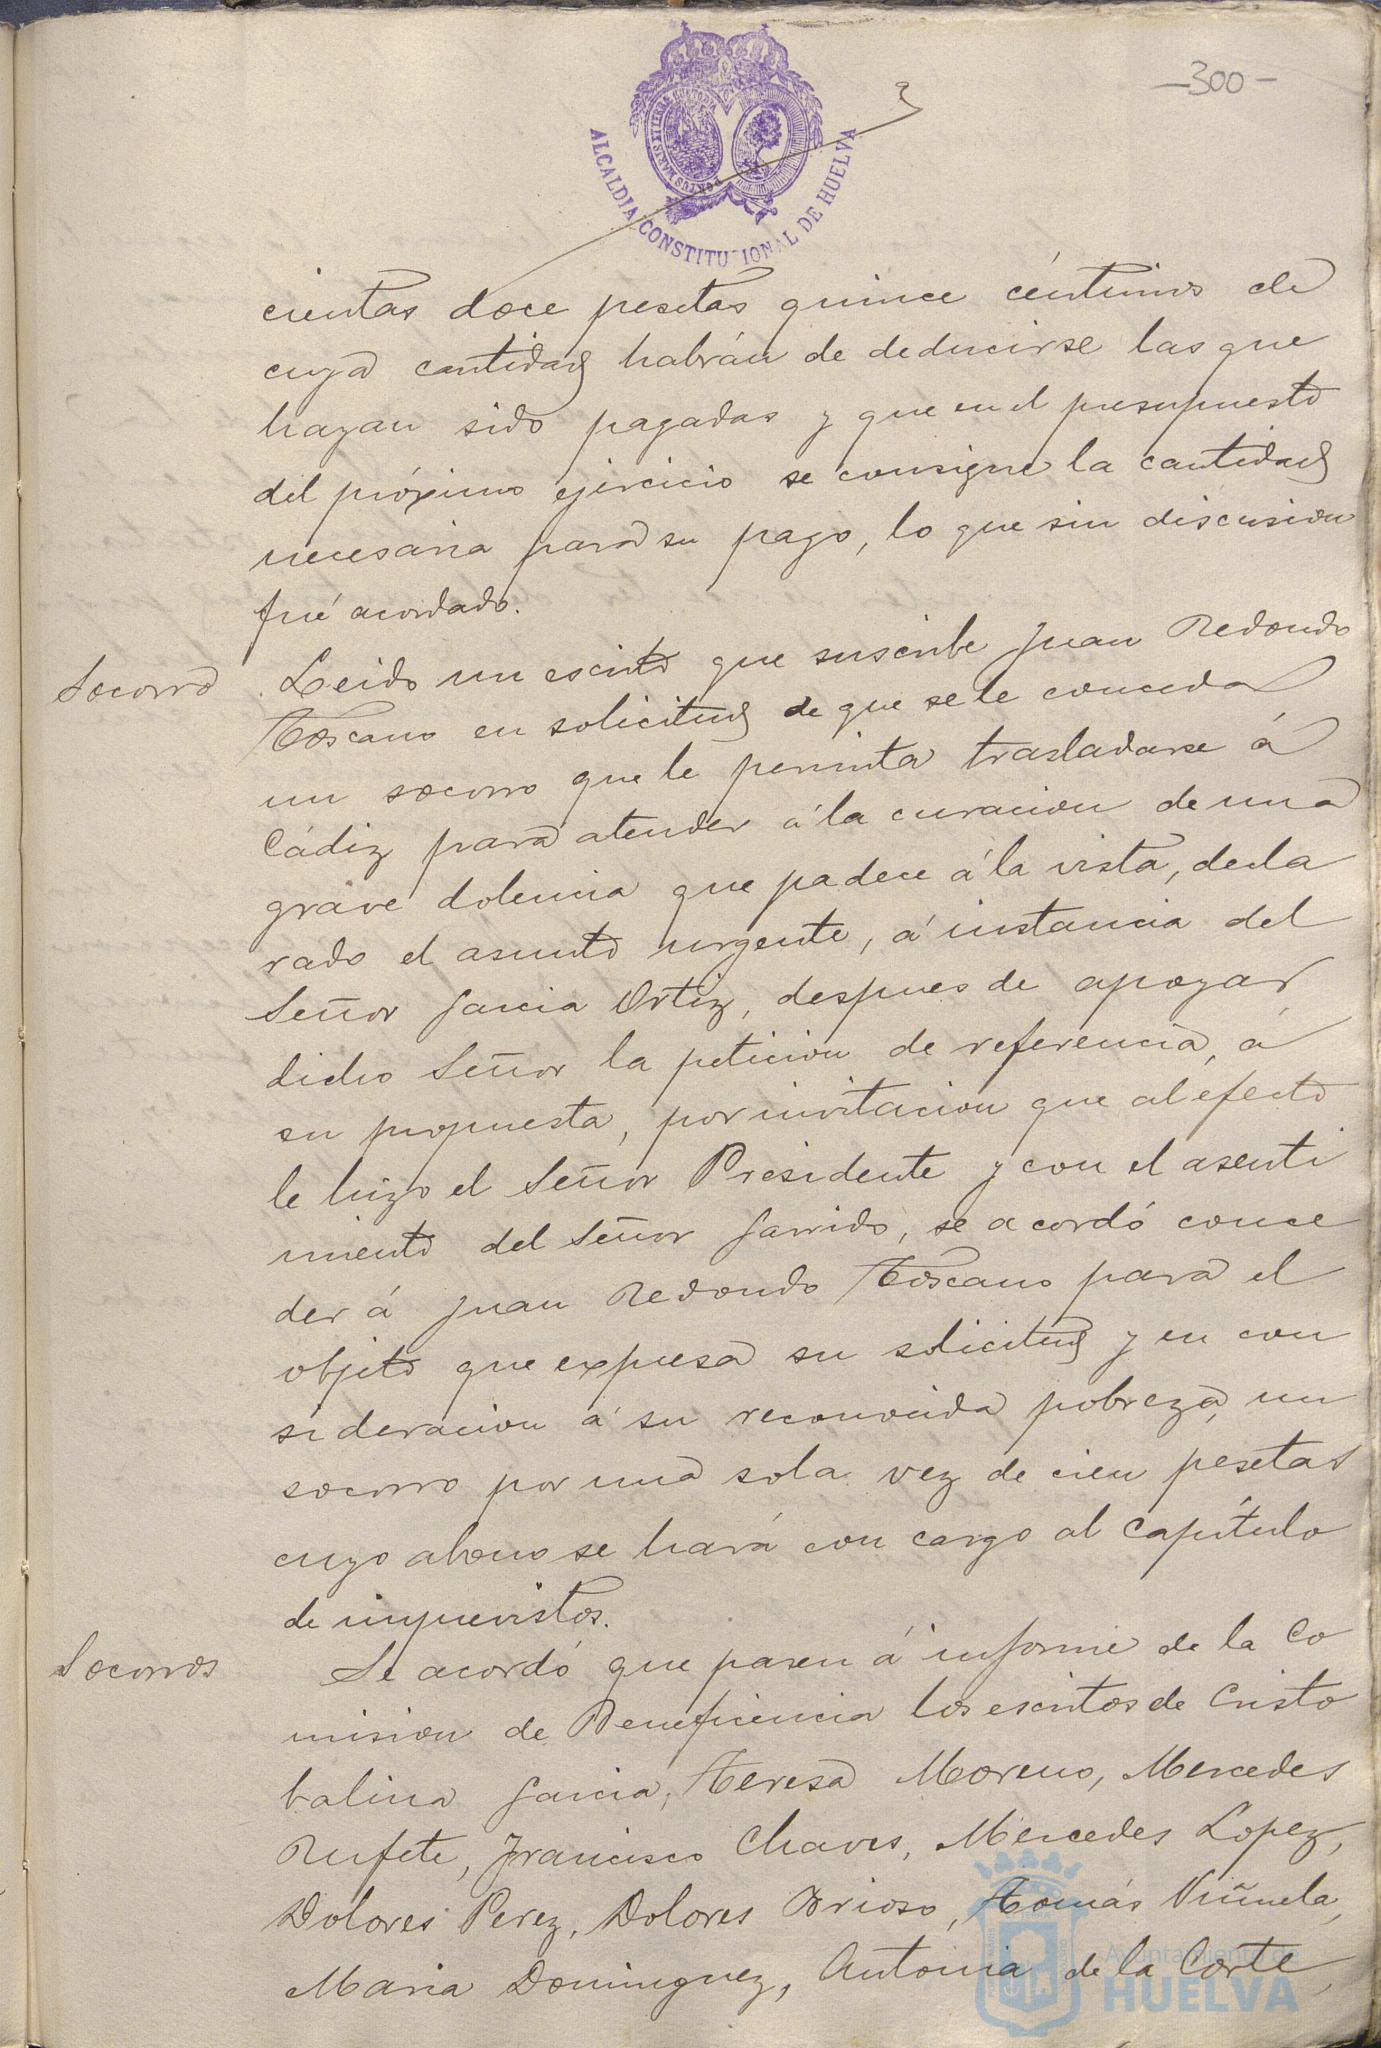 -300-
ALCALDIA CONSTITUCIONAL DE HUELVA
cientas doce pesetas quince céntimos de
cuya cantidad habrán de deducirse las que
hayan sido pagadas y que en el presupuesto
del próximo ejercicio se consigne la cantidad
necesaria para su pago, lo que sin discusion
fué acordado.
Socorro
Leido un escrito que suscribe Juan Redondo
Toscano en solicitud de que se le conceda
un socorro que le permita trasladarse á
Cádiz para atender á la curacion de una
grave dolencia que padece á la vista, decla
rado el asunto urgente, á instancia del
Señor Garcia Ortiz, despues de apoyar
dicho Señor la peticion de referencia, á
su propuesta, por invitacion que al efecto
le hizo el Señor Presidente y con el asenti
miento del Señor Garrido, se acordó conce
der á Juan Redondo Toscano para el
objeto que expresa su solicitud y en con
sideracion á su reconocida pobreza, un
socorro por una sola vez de cien pesetas
cuyo abono se hará con cargo al Capítulo
de imprevistos.
Socorros
Se acordó que pasen á informe de la Co
mision de Beneficencia los escritos de Cristo
balina Garcia, Teresa Moreno, Mercedes
Rufete, Francisco Chaves, Mercedes Lopez,
Dolores Perez, Dolores Brioso, Tomás Viñuela,
Maria Dominguez, Antonia de la Corte,
Ayuntamiento de
HUELVA